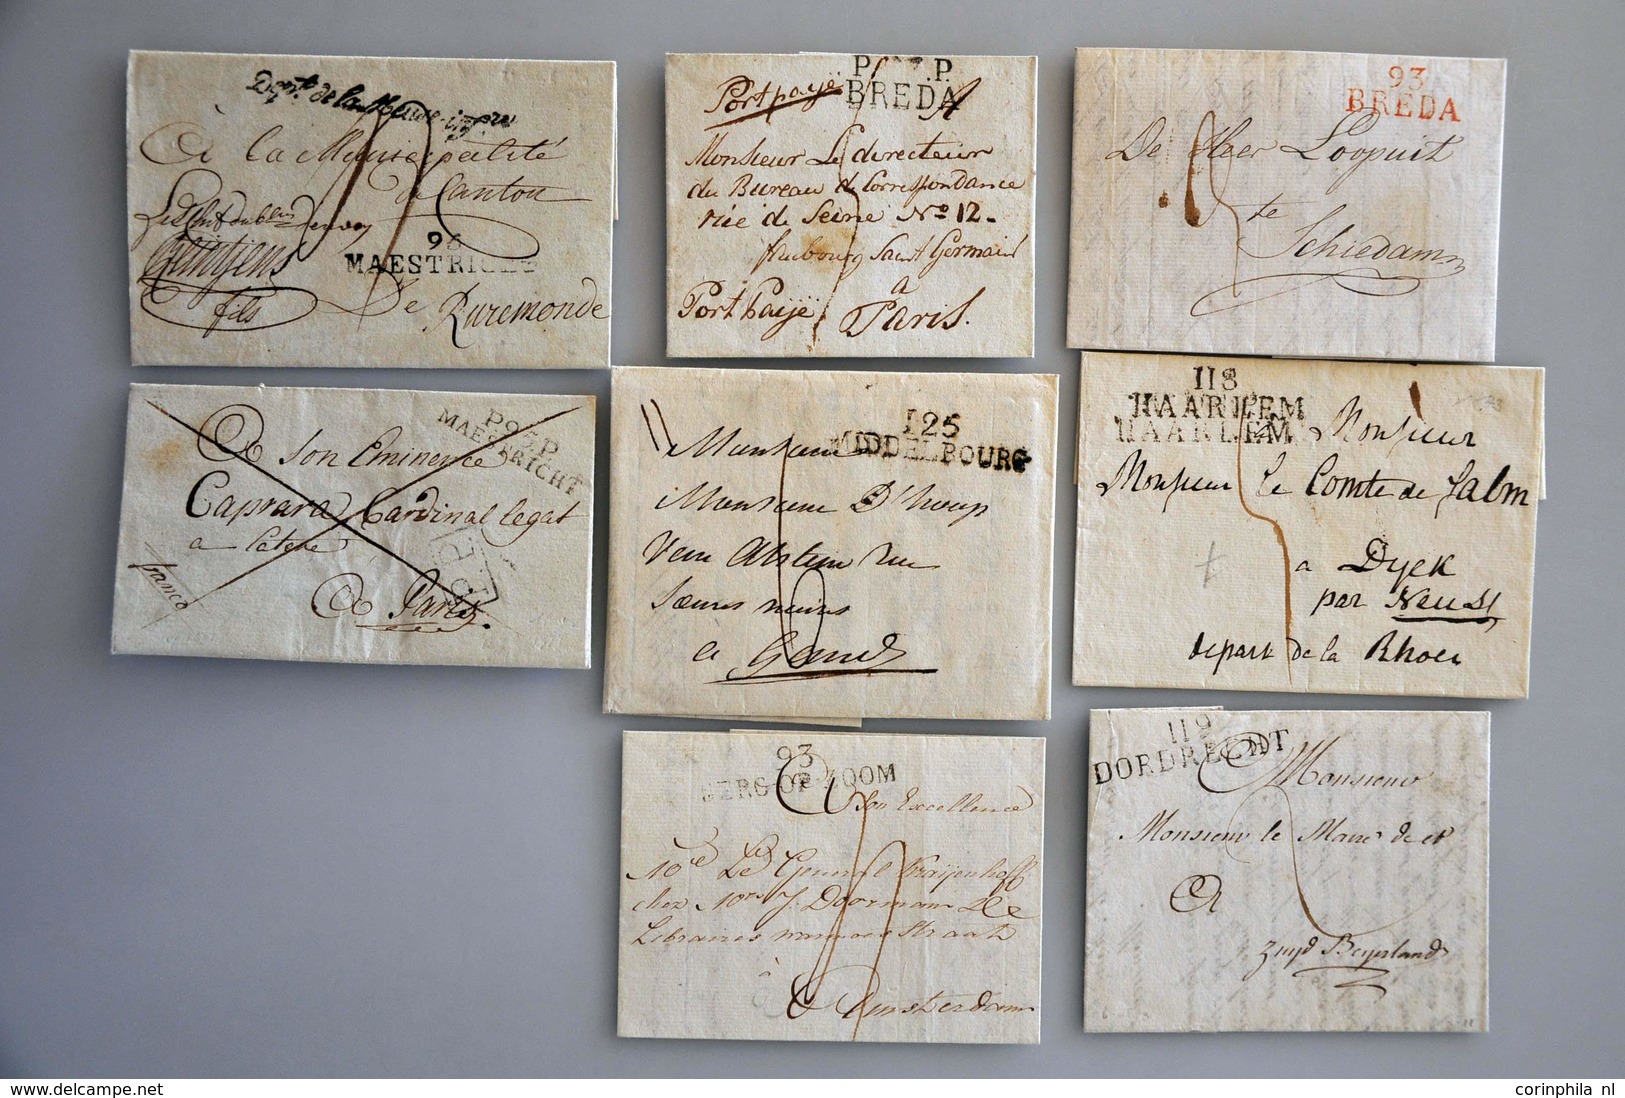 Dépt. de la Meuse-infre
à la Municipalité
de Canton
96
MAESTRICHT
fils
De Ruremonde
P. P.
BREDA
Port payé
Monsieur Le directeur
du Bureau de Correspondance
rüe de Seine No 12-
faubourg Saint Germain
a
Port Payé Paris.
93
BREDA
De Heer Loopuit
te
Schiedam
P95P
MAESTRICHT
A Son Eminence
Caprara Cardinal legat
a latere
franco
A Paris.
P.P.
125
MIDDELBOURG
Monsieur
Monsieur D'hoop
Van Alstein Rue
Soeurs noires
a Gand
118
HAARLEM
HAARLEM
Monsieur
Monsieur Le Comte de Salm
a Dyck
par Neuss
depart de la Rhoer
93
BERG-OP-ZOOM
A Son Excellence
Le General Kraijenhoff
chez J. Doorman
Libraires straat
à
Amsterdam
119
DORDRECHT
Monsieur
Monsieur le Maire de et
A
Zuyd Beyerland
delcampe.net
corinphila nl